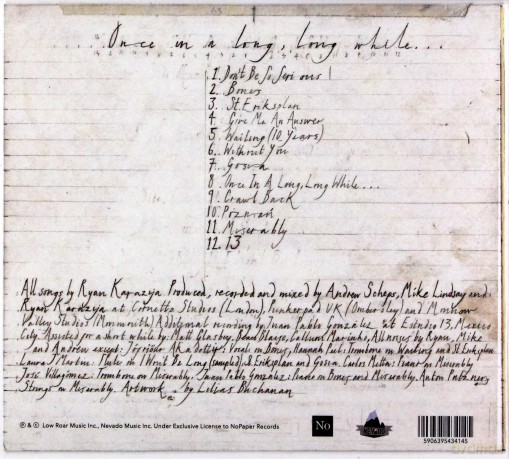 Once in a long, Long while...
1. Don't Be So Serious
2. Bones
3. St. Eriksplan
4 Give Me An Answer
5 Waiting (10 Years)
6. Without You
7. Gosia
8 Once In A Long, Long While...
9. Crawl Back
10. Poznań
11. Miserably
12. 13
All songs by Ryan Karazija Produced, recorded and mixed by Andrew Scheps, Mike Lindsay and
Ryan Karazija at Cornetto Studios (London), Punkerpad UK (Omborsley) and Monnow
Valley Studios (Monmouth) Additional recording by Juan Pablo González at Estudio 13, Mexico
City. Assisted for a short while by: Matt Glasbey, Callum Marinho, All noises by Ryan, Mike
and Andrew except: Vocal on Bones, Hannah Peel: Trombone on Waiting and St. Eriksplan
Laura J Martin: Flute on I Won't Be Long (sampled), St Eriksplan and Gosia. Carlos Metta: Piano on Miserably
José Villagómez: Trombone on Miserably, Juan Pablo González: Piano on Bones and Miserably. Anton Patzner:
Strings on Miserably. Artwork by Lilias Buchanan
℗ & © Low Roar Music Inc., Nevado Music Inc. Under Exclusive License to NoPaper Records
No
5906395434145